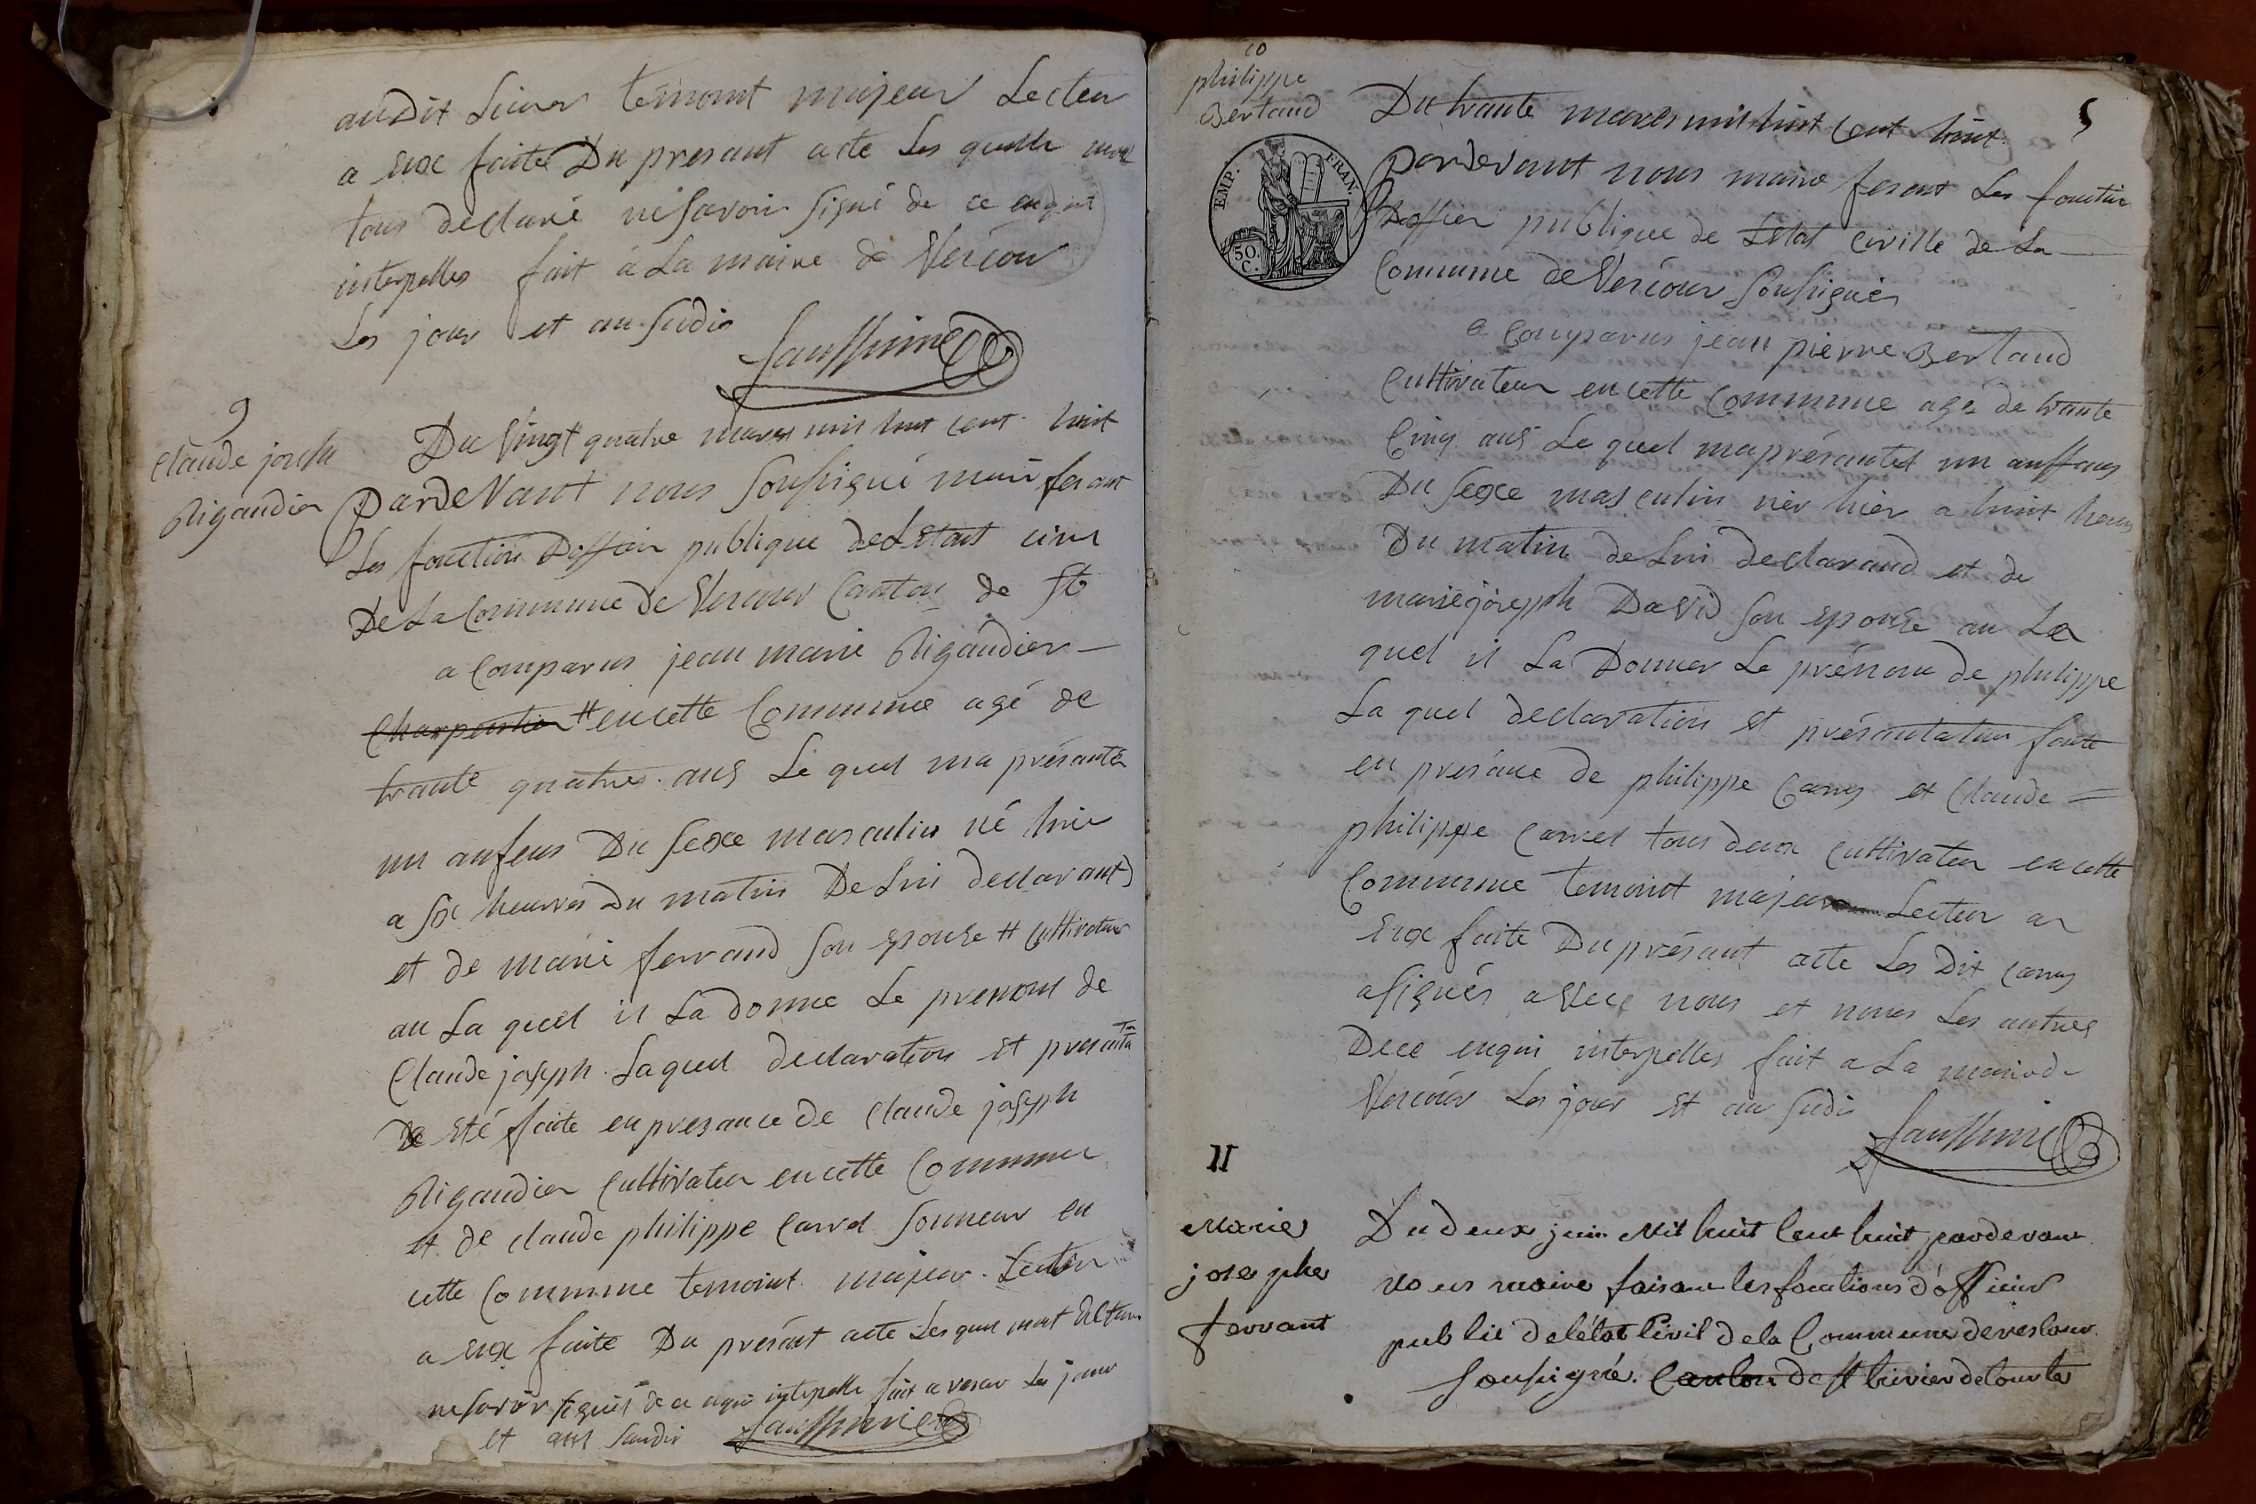 audit Livier temoint majeur Lecteur
a eux faite Du presant acte Les quelle
tous declaré ne savoir signé de ce enquit
interpelles fait á La mairie de Vercour
Les jour et an sudis
Saussinne
9
Claude joseph
Rigaudier
Du Vingt quatre mares mis huit cent huit
Par de Vant nous Soussigué maire fesant
Les fonction Doffier publique de Letat civil
De La Commune de Vercour Canton de St
a Comparus jean marie Rigaudier
Charpentier # en cette Commune agé de
trante quatres ans Le quel ma présanté
un anfens Du Sexe masculin né hier
a six heures du matin De Lui declarant
et de marie ferrand Son epouse # Cultivateur
au La quel il La donne Le prenom de
Claude joseph Laquel declaration et presanta
De eté faite en presance de Claude joseph
Rigaudier Cultivateur en cette Commune
et de claude philippe Carrel Sonneur en
cette Commune temoint majeur Lecteur
a eux faite Du présant acte Les quel
ne savoir signé de ce enqui interpelle fait a vercour Les jour
et ans Sundis Saussinne
10
philippe
Bertaud
5
Du trante mares mil huit Cent huit
EMP. FRAN.
50. C.
Pardevant nous maire fesant Les fonction
Doffier publique de Létat Civille de La
Commune de Vercour Soussignés
a Comparus jean pierre Bertaud
Cultivateur en cette Commune agé de trante
Cinq ans Le quel ma présanted un anffans
Du Sexe masculin nér hier a huit heure
Du matin de Lui declarand et de
marie joseph David Son epouse au La
quel il La Donner Le prénom de philippe
La quel declaration et présantation faite
en presance de philippe Carrey et Claude
philippe Carrel tous deux Cultivateur en cette
Commune temoint majeur Lecteur a
eux faite Du présant acte Les Dit Carrey
a signés avece nous et nous Les autres
Dece enqui interpelles fait a La mairie de
Vercour Les jour et an sudis
Saussinne
11
Marie
josephe
ferrant
Du deux juin Mil huit Cent huit pardevant
nous maire faisant les fonctions d'officier
public de l'état Civil de la Commune de vercour
Soussigné. Canton de St trivier de Courtes